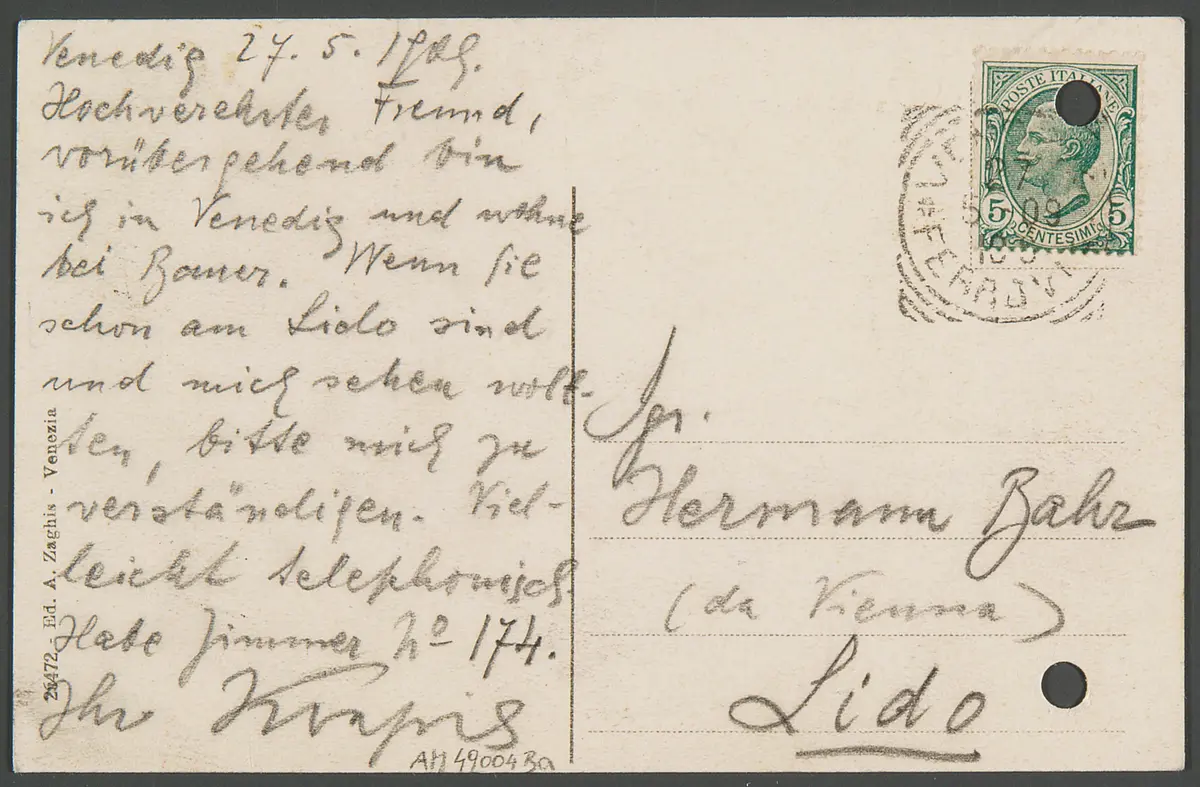 Venedig 27. 5. 1909.
Hochverehrter Freund,
vorübergehend bin
ich in Venedig und wohne
bei Bauer. Wenn Sie
schon am Lido sind
und mich sehen woll-
ten, bitte mich zu
verständigen. Viel-
leicht telephonisch.
Habe Zimmer No 174.
Ihr Kvapil
AM 49004 Ba
Ed. A. Zaghis - Venezia
POSTE ITALIANE
5 5
CENTESIMI
27
5 09
FERROVIA
Sgr.
Hermann Bahr
(da Vienna)
Lido